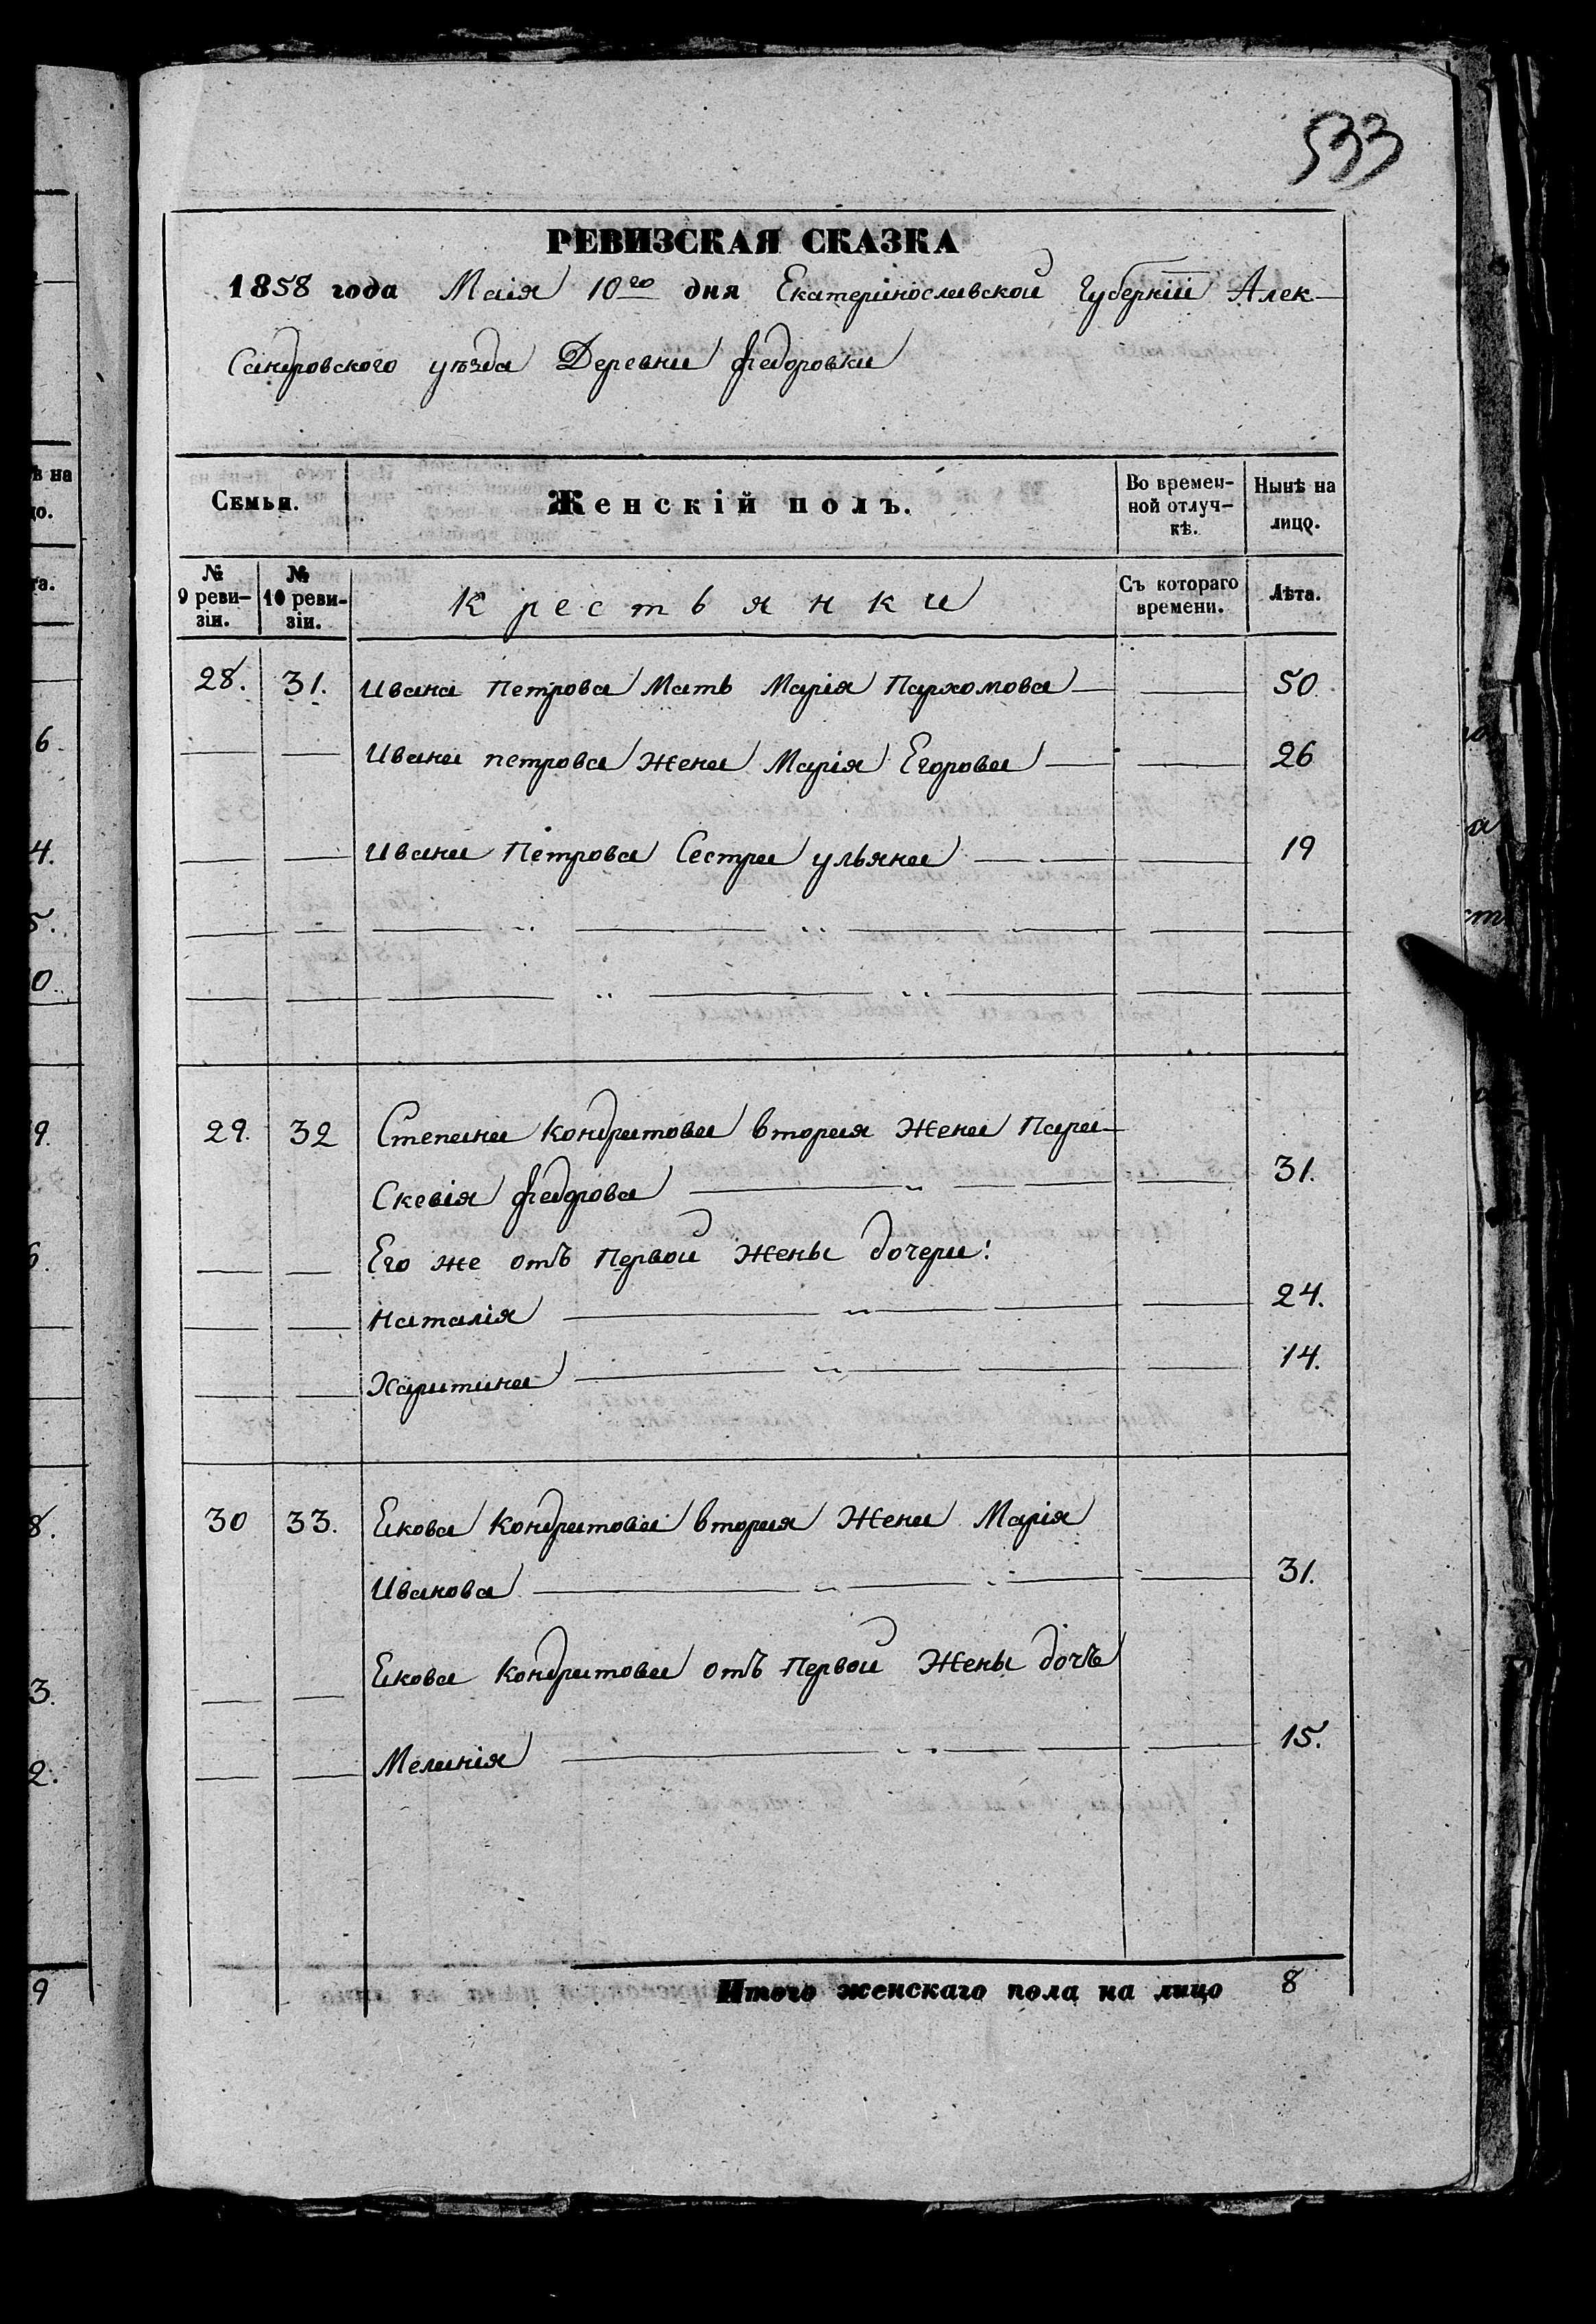 533
РЕВИЗСКАЯ СКАЗКА
1858 года Маія 10го дня Екатеринославской Губерніи Алек-
сандровского уѣзда Деревни Федоровки
Семьи. Женскій полъ. Во времен- Нынѣ на
ной отлуч- лицо.
кѣ.
№ № Крестьянки Съ котораго Лѣта.
9 реви- 10 реви- времени.
зіи. зіи.
28. 31. Ивана Петрова Мать Марія Пархомова 50
Ивана петрова Жена Марія Егорова 26
Ивана Петрова Сестра ульяна 19
29. 32 Степана Кондратова вторая Жена Пара-
скевія Федорова 31.
Его же отъ Первой Жены дочери:
Наталія 24.
Харитина 14.
30 33. Екова Кондратова вторая Жена Марія
Иванова 31.
Екова Кондратова отъ Первой Жены дочъ
Меланія 15.
Итого женскаго пола на лицо 8